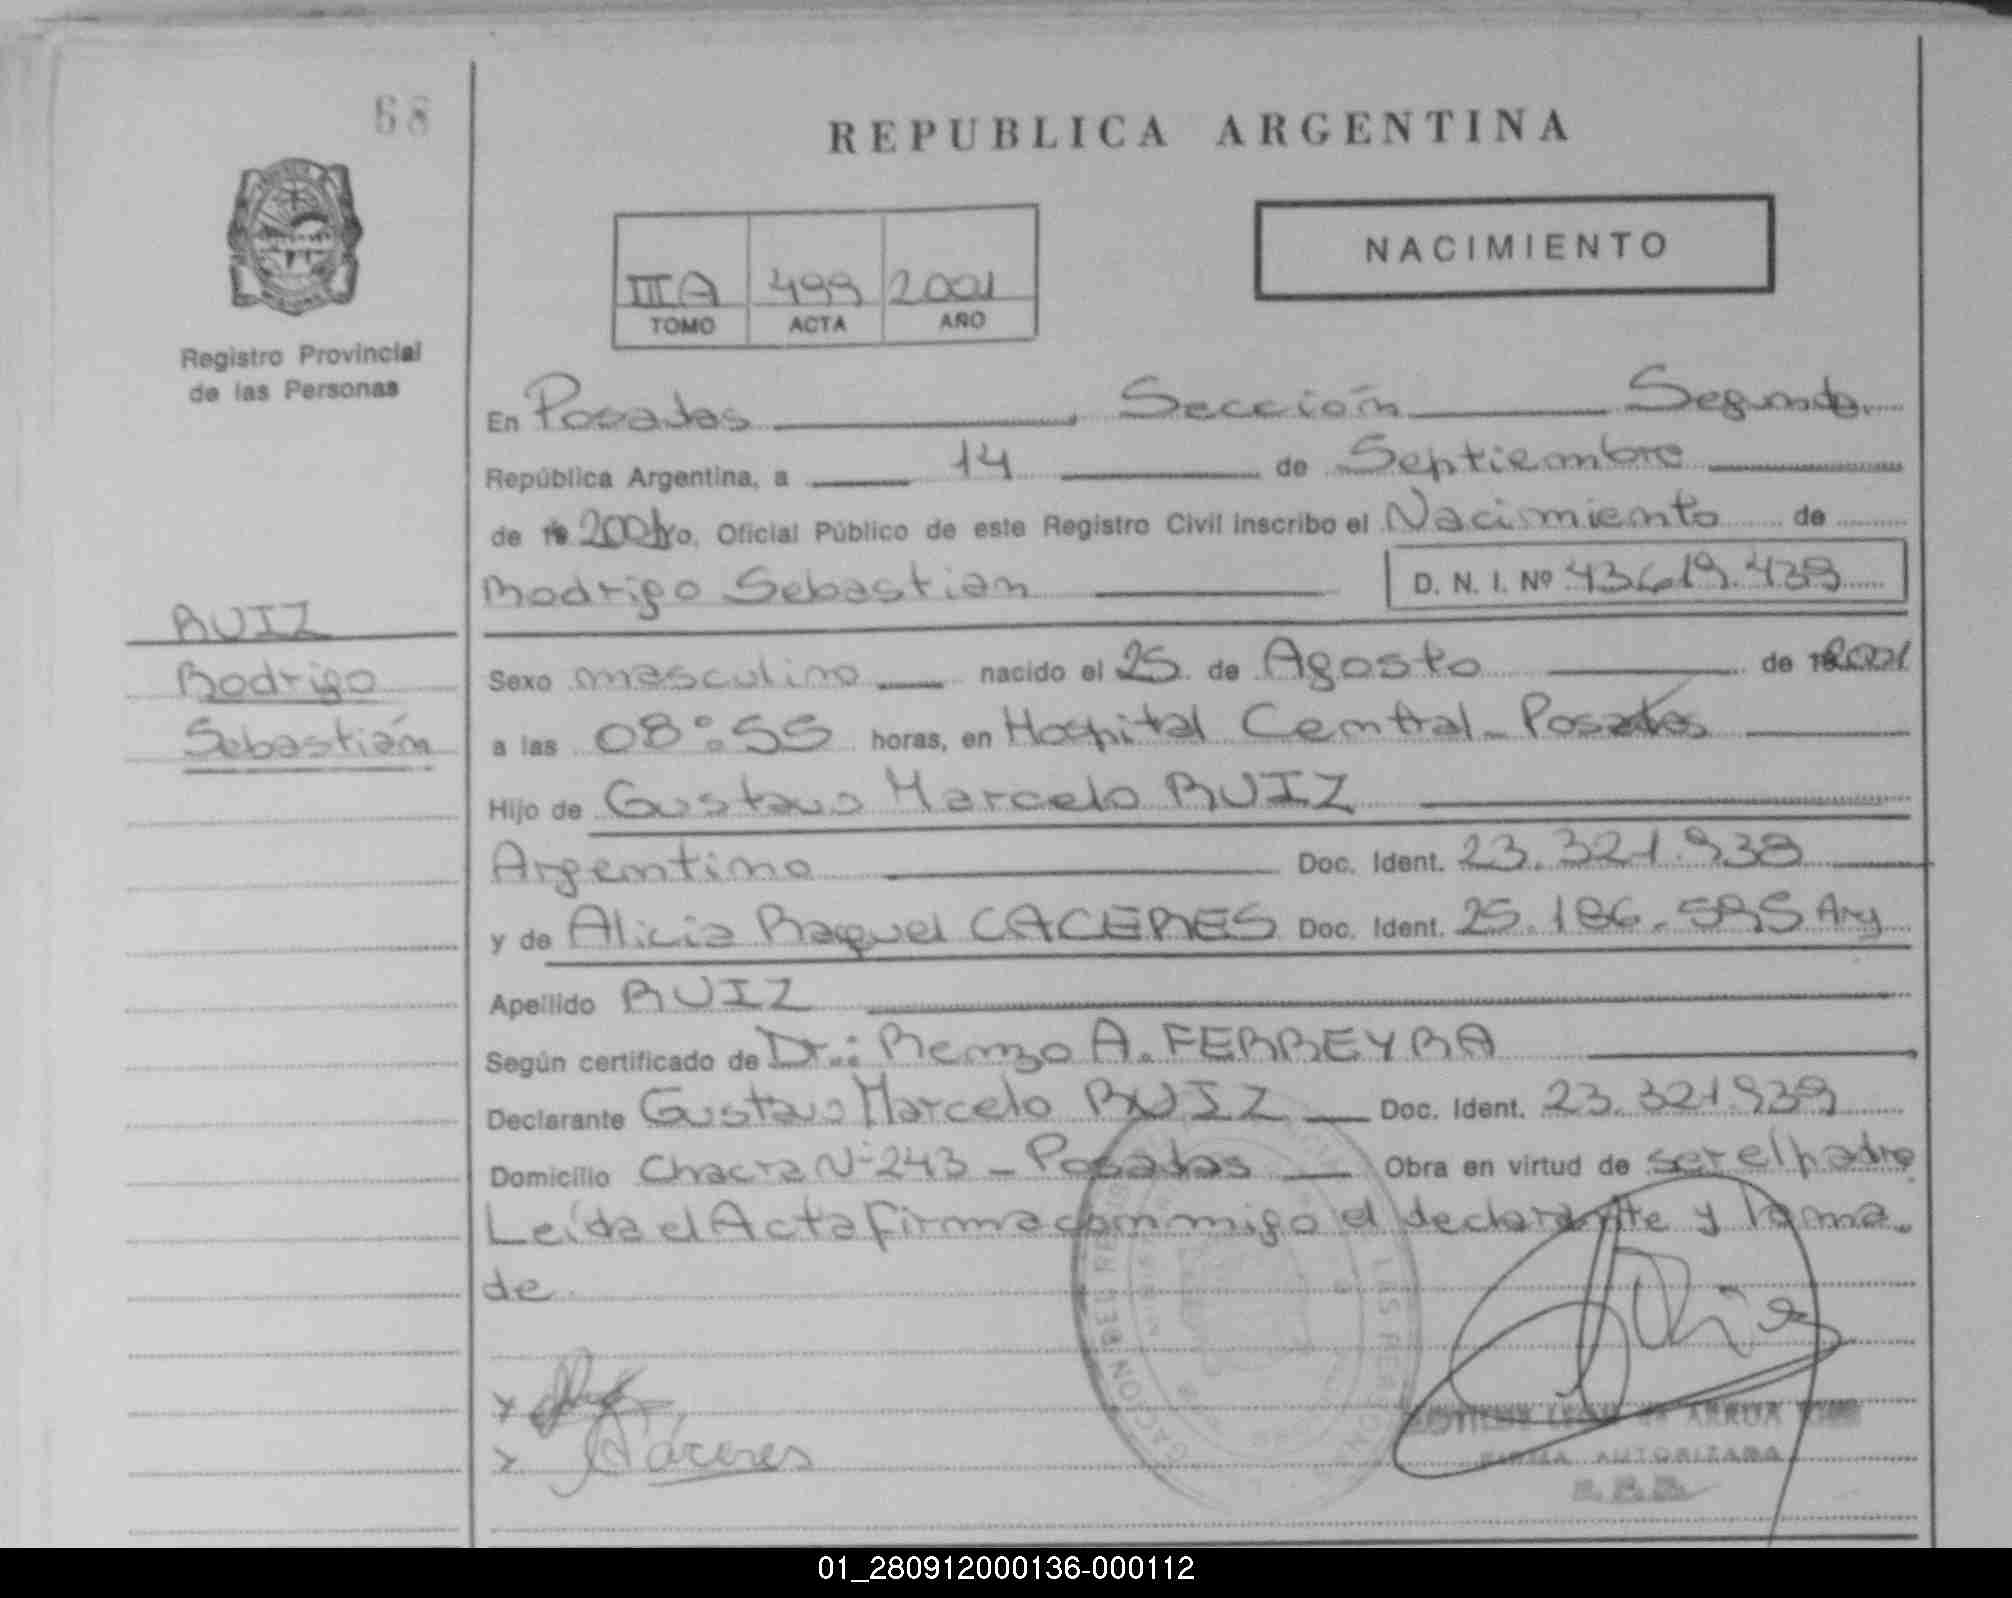 68
REPUBLICA ARGENTINA
NACIMIENTO
IIIA 499 2001
TOMO ACTA AÑO
Registro Provincial
de las Personas
En Posadas, Sección Segunda
República Argentina, a 14 de Septiembre
de 2001 yo, Oficial Público de este Registro Civil inscribo el Nacimiento de
Rodrigo Sebastian D. N. I. Nº 43.619.439
RUIZ
Rodrigo
Sebastián
Sexo masculino nacido el 25 de Agosto de 2001
a las 08:55 horas, en Hospital Central - Posadas
Hijo de Gustavo Marcelo RUIZ
Argentino Doc. Ident. 23.321.939
y de Alicia Raquel CACERES Doc. Ident. 25.186. Arg
Apellido RUIZ
Según certificado de Dr.: Renzo A. FERREYRA
Declarante Gustavo Marcelo RUIZ Doc. Ident. 23.321.939
Domicilio Chacra Nº 243 - Posadas Obra en virtud de ser el padre
Leída el Acta firma conmigo el declarante y la ma
de
Cáceres
FIRMA AUTORIZADA
01_280912000136-000112